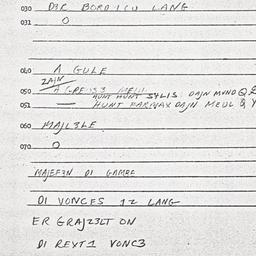 030 DIC BORDICU LANG
031 O
040 A GULE
ZAJN
050 HUNT HUNT SYLIS DAJN MUND Q
051 — HUNT FARWAX DAJN MEUL Q Y
060 MAJL3LE
070 O
MAJEF3N DI GAMBE
DI VONCES 12 LANG
ER GRAJZ3LT ON
DI REXT1 VONC3